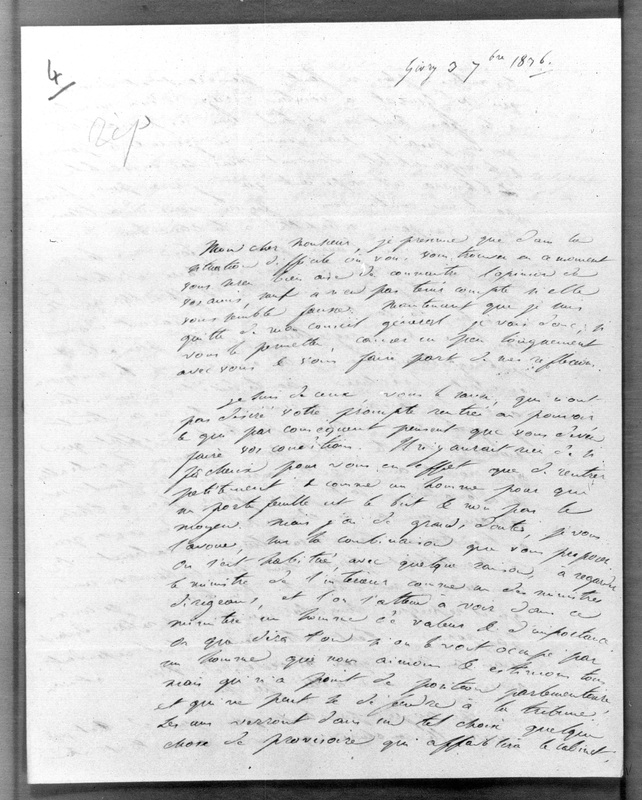 4
rép
Givry 3 7bre 1836.
Mon cher Monsieur, je présume que dans la
situation difficile où vous vous trouvez en ce moment
vous serez bien aise de connaître l'opinion de
vos amis, sauf à n'en pas tenir compte si elle
vous semble fausse. Maintenant que je suis
quitte de mon conseil général je vais donc, si
vous le permettez, causer un peu longuement
avec vous & vous faire part de mes réflexions.
Je suis de ceux, vous le savez, qui n'ont
pas désiré votre prompte rentrée au pouvoir
& qui par conséquent pensent que vous devez
faire vos conditions. Il n'y aurait rien de si
fâcheux pour vous en effet que de rentrer
petitement & comme un homme pour qui
un portefeuille est le but & non pas le
moyen. mais j'ai de grands doutes, je vous
l'avoue, sur la combinaison que vous propose
On s'est habitué, avec quelque raison, à regarder
le ministre de l'intérieur comme un des ministres
dirigeans, et l'on s'attend à voir dans ce
ministère un homme de valeur & d'importance
or que dira-t-on si on le voit occupé par
un homme que nous aimons & estimons tous
mais qui n'a point de position parlementaire
et qui ne peut se défendre à la tribune.
Les uns verront dans un tel choix quelque
chose de provisoire qui affaiblira le cabinet,